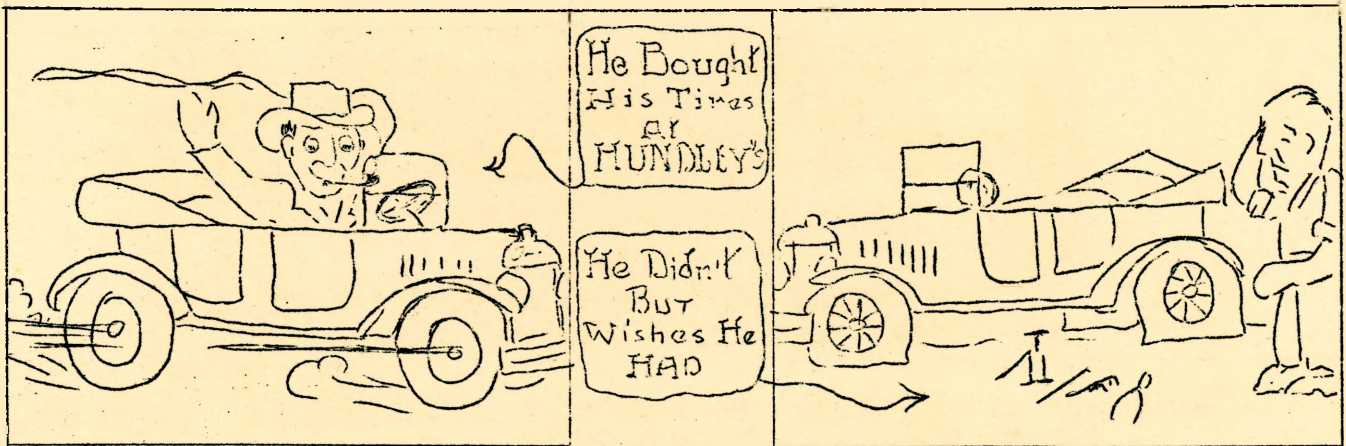 He Bought
His Tires
At
HUNDLEY'S
He Didn't
But
Wishes He
HAD